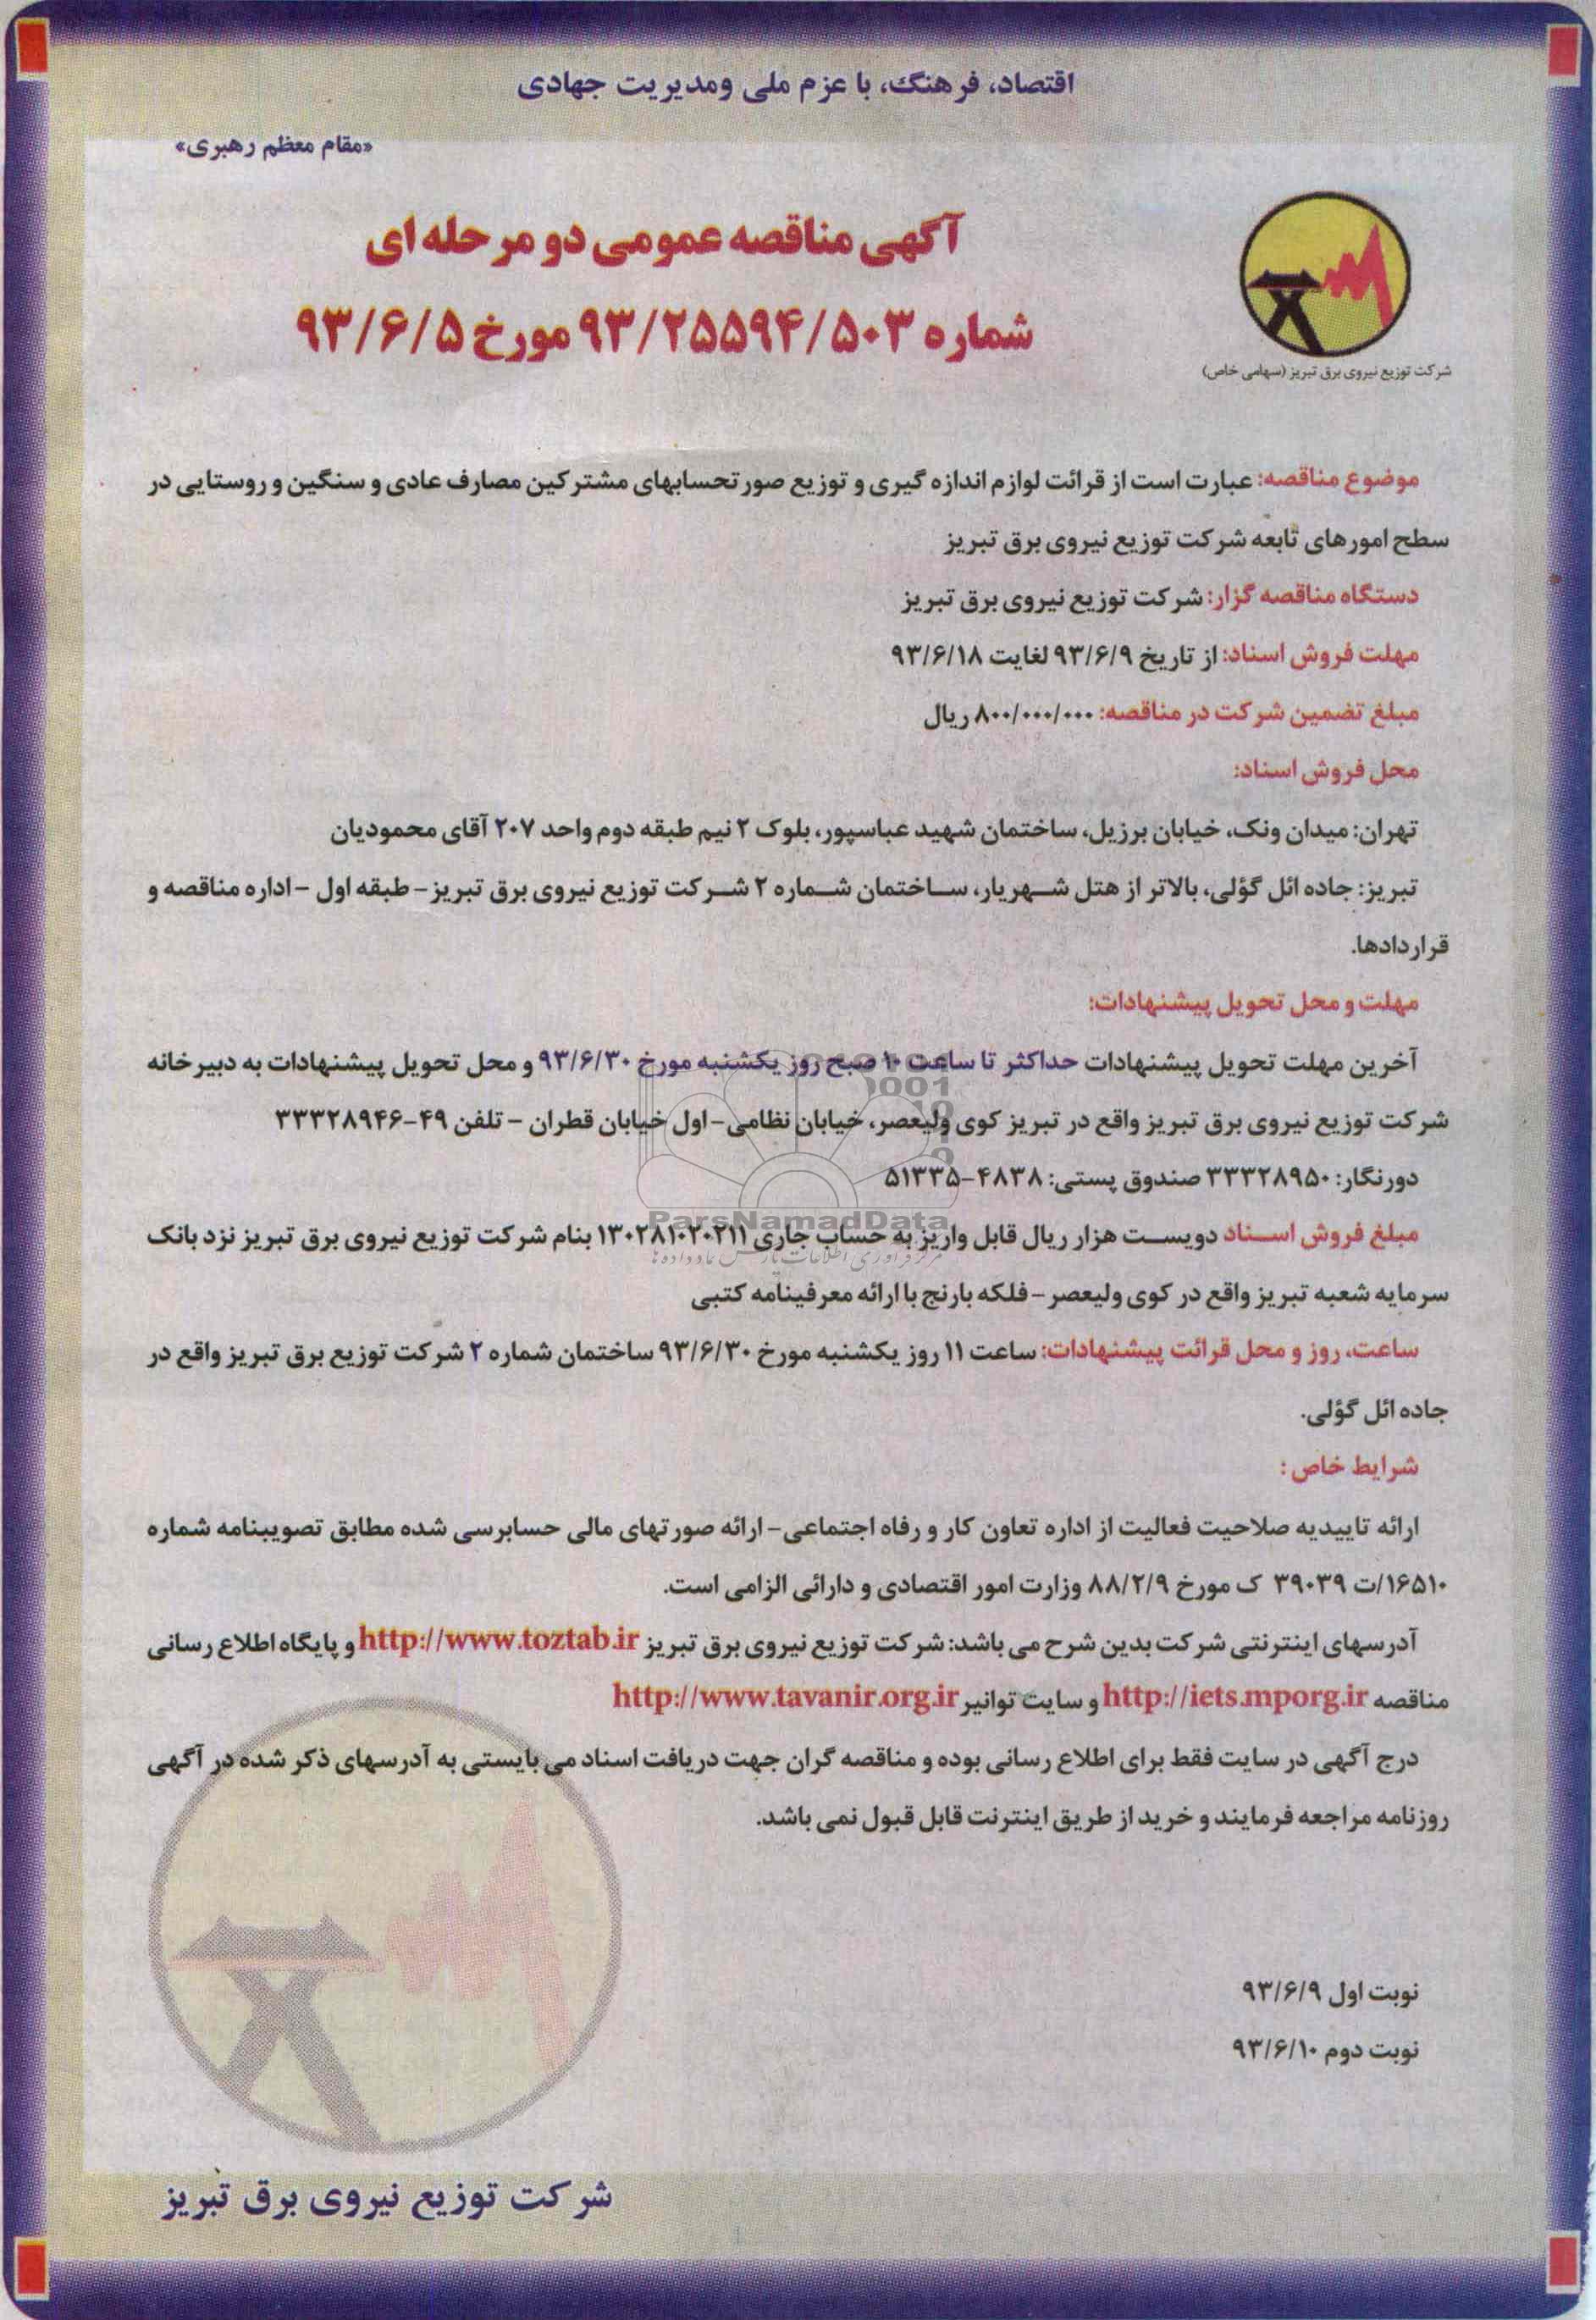 اقتصاد، فرهنگ، با عزم ملی ومدیریت جهادی
«مقام معظم رهبری»
آگهی مناقصه عمومی دو مرحله ای
شماره ۹۳/۲۵۵۹۴/۵۰۳ مورخ ۹۳/۶/۵
شرکت توزیع نیروی برق تبریز (سهامی خاص)
موضوع مناقصه: عبارت است از قرائت لوازم اندازه گیری و توزیع صورتحسابهای مشترکین مصارف عادی و سنگین و روستایی در
سطح امورهای تابعه شرکت توزیع نیروی برق تبریز
دستگاه مناقصه گزار: شرکت توزیع نیروی برق تبریز
مهلت فروش اسناد: از تاریخ ۹۳/۶/۹ لغایت ۹۳/۶/۱۸
مبلغ تضمین شرکت در مناقصه: ۸۰۰/۰۰۰/۰۰۰ ریال
محل فروش اسناد:
تهران: میدان ونک، خیابان برزیل، ساختمان شهید عباسپور، بلوک ۲ نیم طبقه دوم واحد ۲۰۷ آقای محمودیان
تبریز: جاده ائل گؤلی، بالاتر از هتل شهریار، ساختمان شماره ۲ شرکت توزیع نیروی برق تبریز- طبقه اول -اداره مناقصه و
قراردادها.
مهلت و محل تحویل پیشنهادات:
آخرین مهلت تحویل پیشنهادات حداکثر تا ساعت ۱۰ صبح روز یکشنبه مورخ ۹۳/۶/۳۰ و محل تحویل پیشنهادات به دبیرخانه
شرکت توزیع نیروی برق تبریز واقع در تبریز کوی ولیعصر، خیابان نظامی- اول خیابان قطران - تلفن ۴۹-۳۳۳۲۸۹۴۶
دورنگار: ۳۳۳۲۸۹۵۰ صندوق پستی: ۴۸۳۸-۵۱۳۳۵
ParsNamadData
مبلغ فروش اسناد دویست هزار ریال قابل واریز به حساب جاری ۱۳۰۲۸۱۰۲۰۲۱۱ بنام شرکت توزیع نیروی برق تبریز نزد بانک
مرکز فرآوری اطلاعات پارس نماد داده ها
سرمایه شعبه تبریز واقع در کوی ولیعصر - فلکه بارنج با ارائه معرفینامه کتبی
ساعت، روز و محل قرائت پیشنهادات: ساعت ۱۱ روز یکشنبه مورخ ۹۳/۶/۳۰ ساختمان شماره ۲ شرکت توزیع برق تبریز واقع در
جاده ائل گؤلی.
شرایط خاص :
ارائه تاییدیه صلاحیت فعالیت از اداره تعاون کار و رفاه اجتماعی- ارائه صورتهای مالی حسابرسی شده مطابق تصویبنامه شماره
۱۶۵۱۰/ت ۳۹۰۳۹ ک مورخ ۸۸/۲/۹ وزارت امور اقتصادی و دارائی الزامی است.
آدرسهای اینترنتی شرکت بدین شرح می باشد: شرکت توزیع نیروی برق تبریز http://www.toztab.ir و پایگاه اطلاع رسانی
مناقصه http://iets.mporg.ir و سایت توانیر http://www.tavanir.org.ir
درج آگهی در سایت فقط برای اطلاع رسانی بوده و مناقصه گران جهت دریافت اسناد می بایستی به آدرسهای ذکر شده در آگهی
روزنامه مراجعه فرمایند و خرید از طریق اینترنت قابل قبول نمی باشد.
نوبت اول ۹۳/۶/۹
نوبت دوم ۹۳/۶/۱۰
شرکت توزیع نیروی برق تبریز